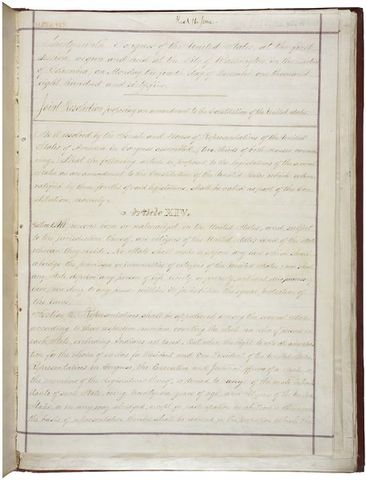 Congress of the United States, at the first
session, begun and held at the City of Washington, in the District
of Columbia, on Monday the fourth day of December one thousand
eight hundred and sixty-five.
Joint Resolution proposing an amendment to the Constitution of the United States.
Be it resolved by the Senate and House of Representatives of the United
States of America in Congress assembled, (two thirds of both Houses concur-
ring,) That the following article be proposed to the legislatures of the several
States as an amendment to the Constitution of the United States, which, when
ratified by three fourths of said legislatures, shall be valid as part of the Con-
stitution, namely:
Article XIV.
Section 1. All persons born or naturalized in the United States, and subject
to the jurisdiction thereof, are citizens of the United States and of the State
wherein they reside. No State shall make or enforce any law which shall
abridge the privileges or immunities of citizens of the United States; nor shall
any State deprive any person of life, liberty, or property, without due process
of law; nor deny to any person within its jurisdiction the equal protection of
the laws.
Section 2. Representatives shall be apportioned among the several States
according to their respective numbers, counting the whole number of persons in
each State, excluding Indians not taxed. But when the right to vote at any elec-
tion for the choice of electors for President and Vice President of the United States,
Representatives in Congress, the Executive and Judicial officers of a State, or
the members of the Legislature thereof, is denied to any of the male inhab-
itants of such State, being twenty-one years of age, and citizens of the United
States, or in any way abridged, except for participation in rebellion, or other crime,
the basis of representation therein shall be reduced in the proportion which the